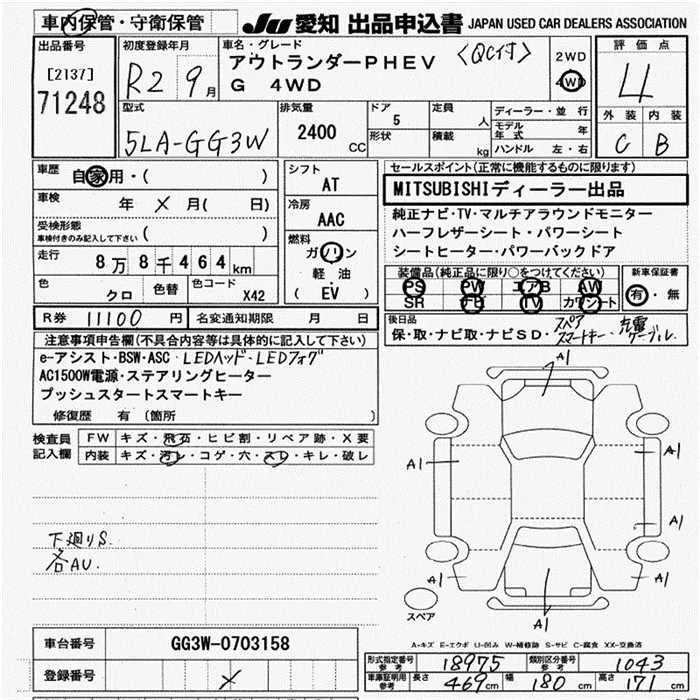 車内保管・守衛保管
JU 愛知 出品申込書 JAPAN USED CAR DEALERS ASSOCIATION
出品番号
[2137]
71248
初度登録年月
R2 9月
車名・グレード
アウトランダーPHEV <QC付>
G 4WD
2WD
4WD
評価点
4
外装 内装
C B
型式
5LA-GG3W
排気量
2400 CC
ドア
5
形状
定員
人
積載
kg
ディーラー・並行
モデル年式 年
ハンドル 左・右
車歴
自家用・( )
車検
年 メ 月( 日)
受検形態
車検付きのみ記入して下さい ( )
走行
8万8千464km
色
クロ
色替
色コード
X42
シフト
AT
冷房
AAC
燃料
ガソリン
軽油
(EV)
R券 11100円
名変通知期限 月 日
セールスポイント(正常に機能するものに限ります)
MITSUBISHIディーラー出品
純正ナビ・TV・マルチアラウンドモニター
ハーフレザーシート・パワーシート
シートヒーター・パワーバックドア
装備品(純正品に限り○をつけてください)
PS PW エアB AW
SR ナビ TV カワシート
新車保証書
有・無
後日品
保・取・ナビ取・ナビSD・スペアスマートキー・充電ケーブル
注意事項申告欄(不具合内容等は大きく記入して下さい)
e-アシスト・BSW・ASC・LEDヘッド・LEDフォグ
AC1500W電源・ステアリングヒーター
プッシュスタートスマートキー
修復歴 有 (箇所 )
検査員
記入欄
FW キズ・飛石・ヒビ割・リペア跡・X要
内装 キズ・汚レ・コゲ・穴・スレ・キレ・破レ
下廻りS.
各AU.
A1
A1
A1
A1
A1
A1
A1
スペア
A-キズ E-エクボ U-凹み W-補修跡 S-サビ C-腐食 XX-交換済
車台番号 GG3W-0703158
登録番号 メ
形式指定番号 参考 18975 類別区分番号 参考 1043
車庫証明用 参考 長さ 469cm 幅 180cm 高さ 171cm